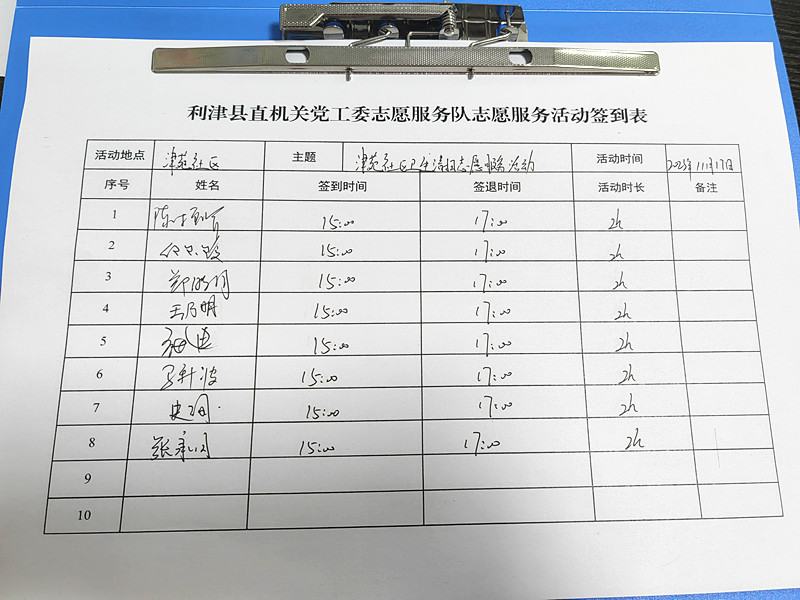 利津县直机关党工委志愿服务队志愿服务活动签到表
活动地点 津苑社区 主题 津苑社区卫生清扫志愿服务活动 活动时间 2023年11月17日
序号 姓名 签到时间 签退时间 活动时长 备注
1 15:00 17:00 2h
2 15:00 17:00 2h
3 15:00 17:00 2h
4 王乃明 15:00 17:00 2h
5 15:00 17:00 2h
6 15:00 17:00 2h
7 15:00 17:00 2h
8 15:00 17:00 2h
9
10